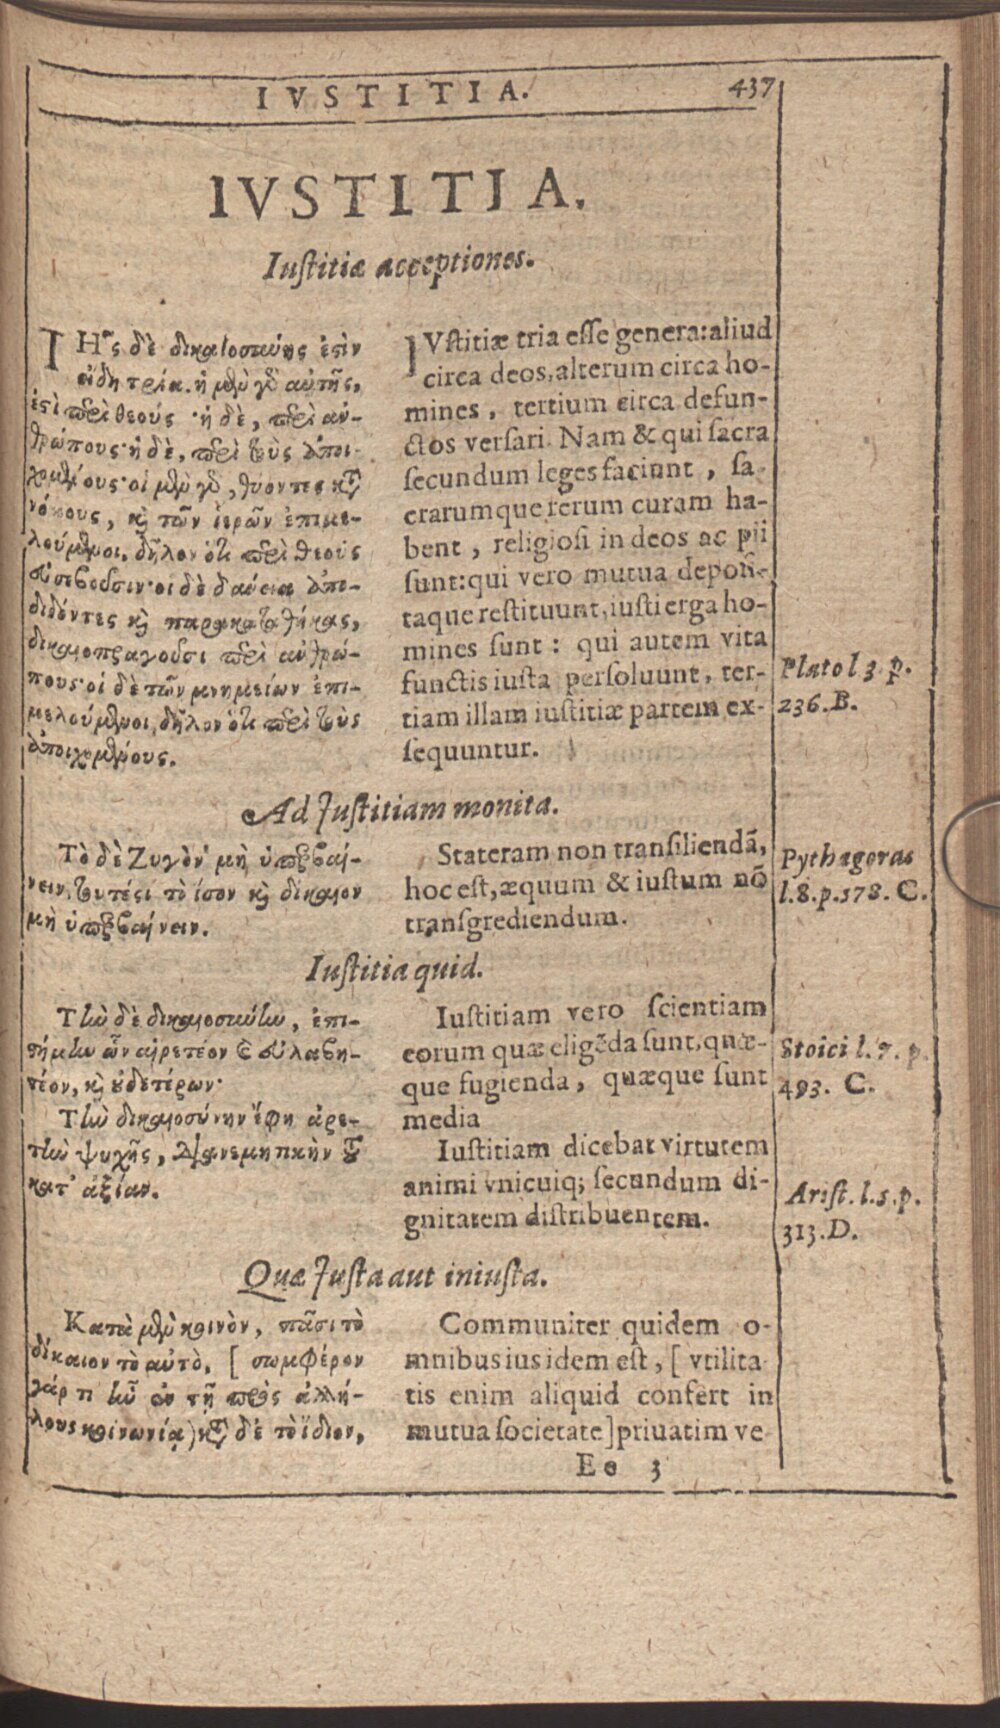 IVSTITIA. 437
IVSTITIA.
Iustitiæ acceptiones.
ΤΗς δὲ δικαιοσύνης ἐστὶν
εἴδη τρία. ἡ μὲν γὸ αὐτῆς,
ἐστὶ περὶ θεούς · ἡ δὲ, περὶ ἀν-
θρώπους· ἡ δὲ, περὶ τοὺς ἀποι-
χομένους· οἱ μὲν γὸ, θύοντες κτ
νόμους, καὶ τῶν ἱερῶν ἐπιμε-
λούμενοι, δῆλον ὅτι περὶ θεοὺς
εὐσεβοῦσιν· οἱ δὲ δάνεια ἀπο-
διδόντες καὶ παρακαταθήκας,
δικαιοπραγοῦσι περὶ ἀνθρώ-
πους· οἱ δὲ τῶν μνημείων ἐπι-
μελούμενοι, δῆλον ὅτι περὶ τοὺς
ἀποιχομένους.
IVstitiæ tria esse genera: aliud
circa deos, alterum circa ho-
mines, tertium circa defun-
ctos versari. Nam & qui sacra
secundum leges faciunt, sa-
crarumque rerum curam ha-
bent, religiosi in deos ac pii
sunt: qui vero mutua deposi-
taque restituunt, iusti erga ho-
mines sunt: qui autem vita
functis iusta persoluunt, ter-
tiam illam iustitiæ partem ex-
sequuntur.
Plato l 3. p.
236. B.
Ad Justitiam monita.
Τὸ δὲ Ζυγὸν μὴ ὑπερβαί-
νειν, τουτέστι τὸ ἴσον καὶ δίκαιον
μὴ ὑπερβαίνειν.
Stateram non transiliendā,
hoc est, æquum & iustum nō
transgrediendum.
Pythagoras
l. 8. p. 578. C.
Iustitia quid.
Τὼ δὲ δικαιοσύνω, ἐπι-
στήμω ὧν αἱρετέον καὶ εὐλαβη-
τέον, καὶ οὐδετέρων·
Τὼ δικαιοσύνην ἔφη ἀρε-
τὼ ψυχῆς, διανεμητικὴν τοῦ
κατ' ἀξίαν.
Iustitiam vero scientiam
eorum quæ eligēda sunt, quæ-
que fugienda, quæque sunt
media
Iustitiam dicebat virtutem
animi vnicuiq; secundum di-
gnitatem distribuentem.
Stoici l. 7. p.
493. C.
Arist. l. 5. p.
313. D.
Quæ Justa aut iniusta.
Κατὰ μὲν κοινὸν, πᾶσι τὸ
δίκαιον τὸ αὐτὸ, [ συμφέρον
γάρ τι ἦν ἐν τῇ πρὸς ἀλλή-
λους κοινωνίᾳ) κτ δὲ τὸ ἴδιον,
Communiter quidem o-
mnibus ius idem est, [ vtilita-
tis enim aliquid confert in
mutua societate] priuatim ve-
Ee 3